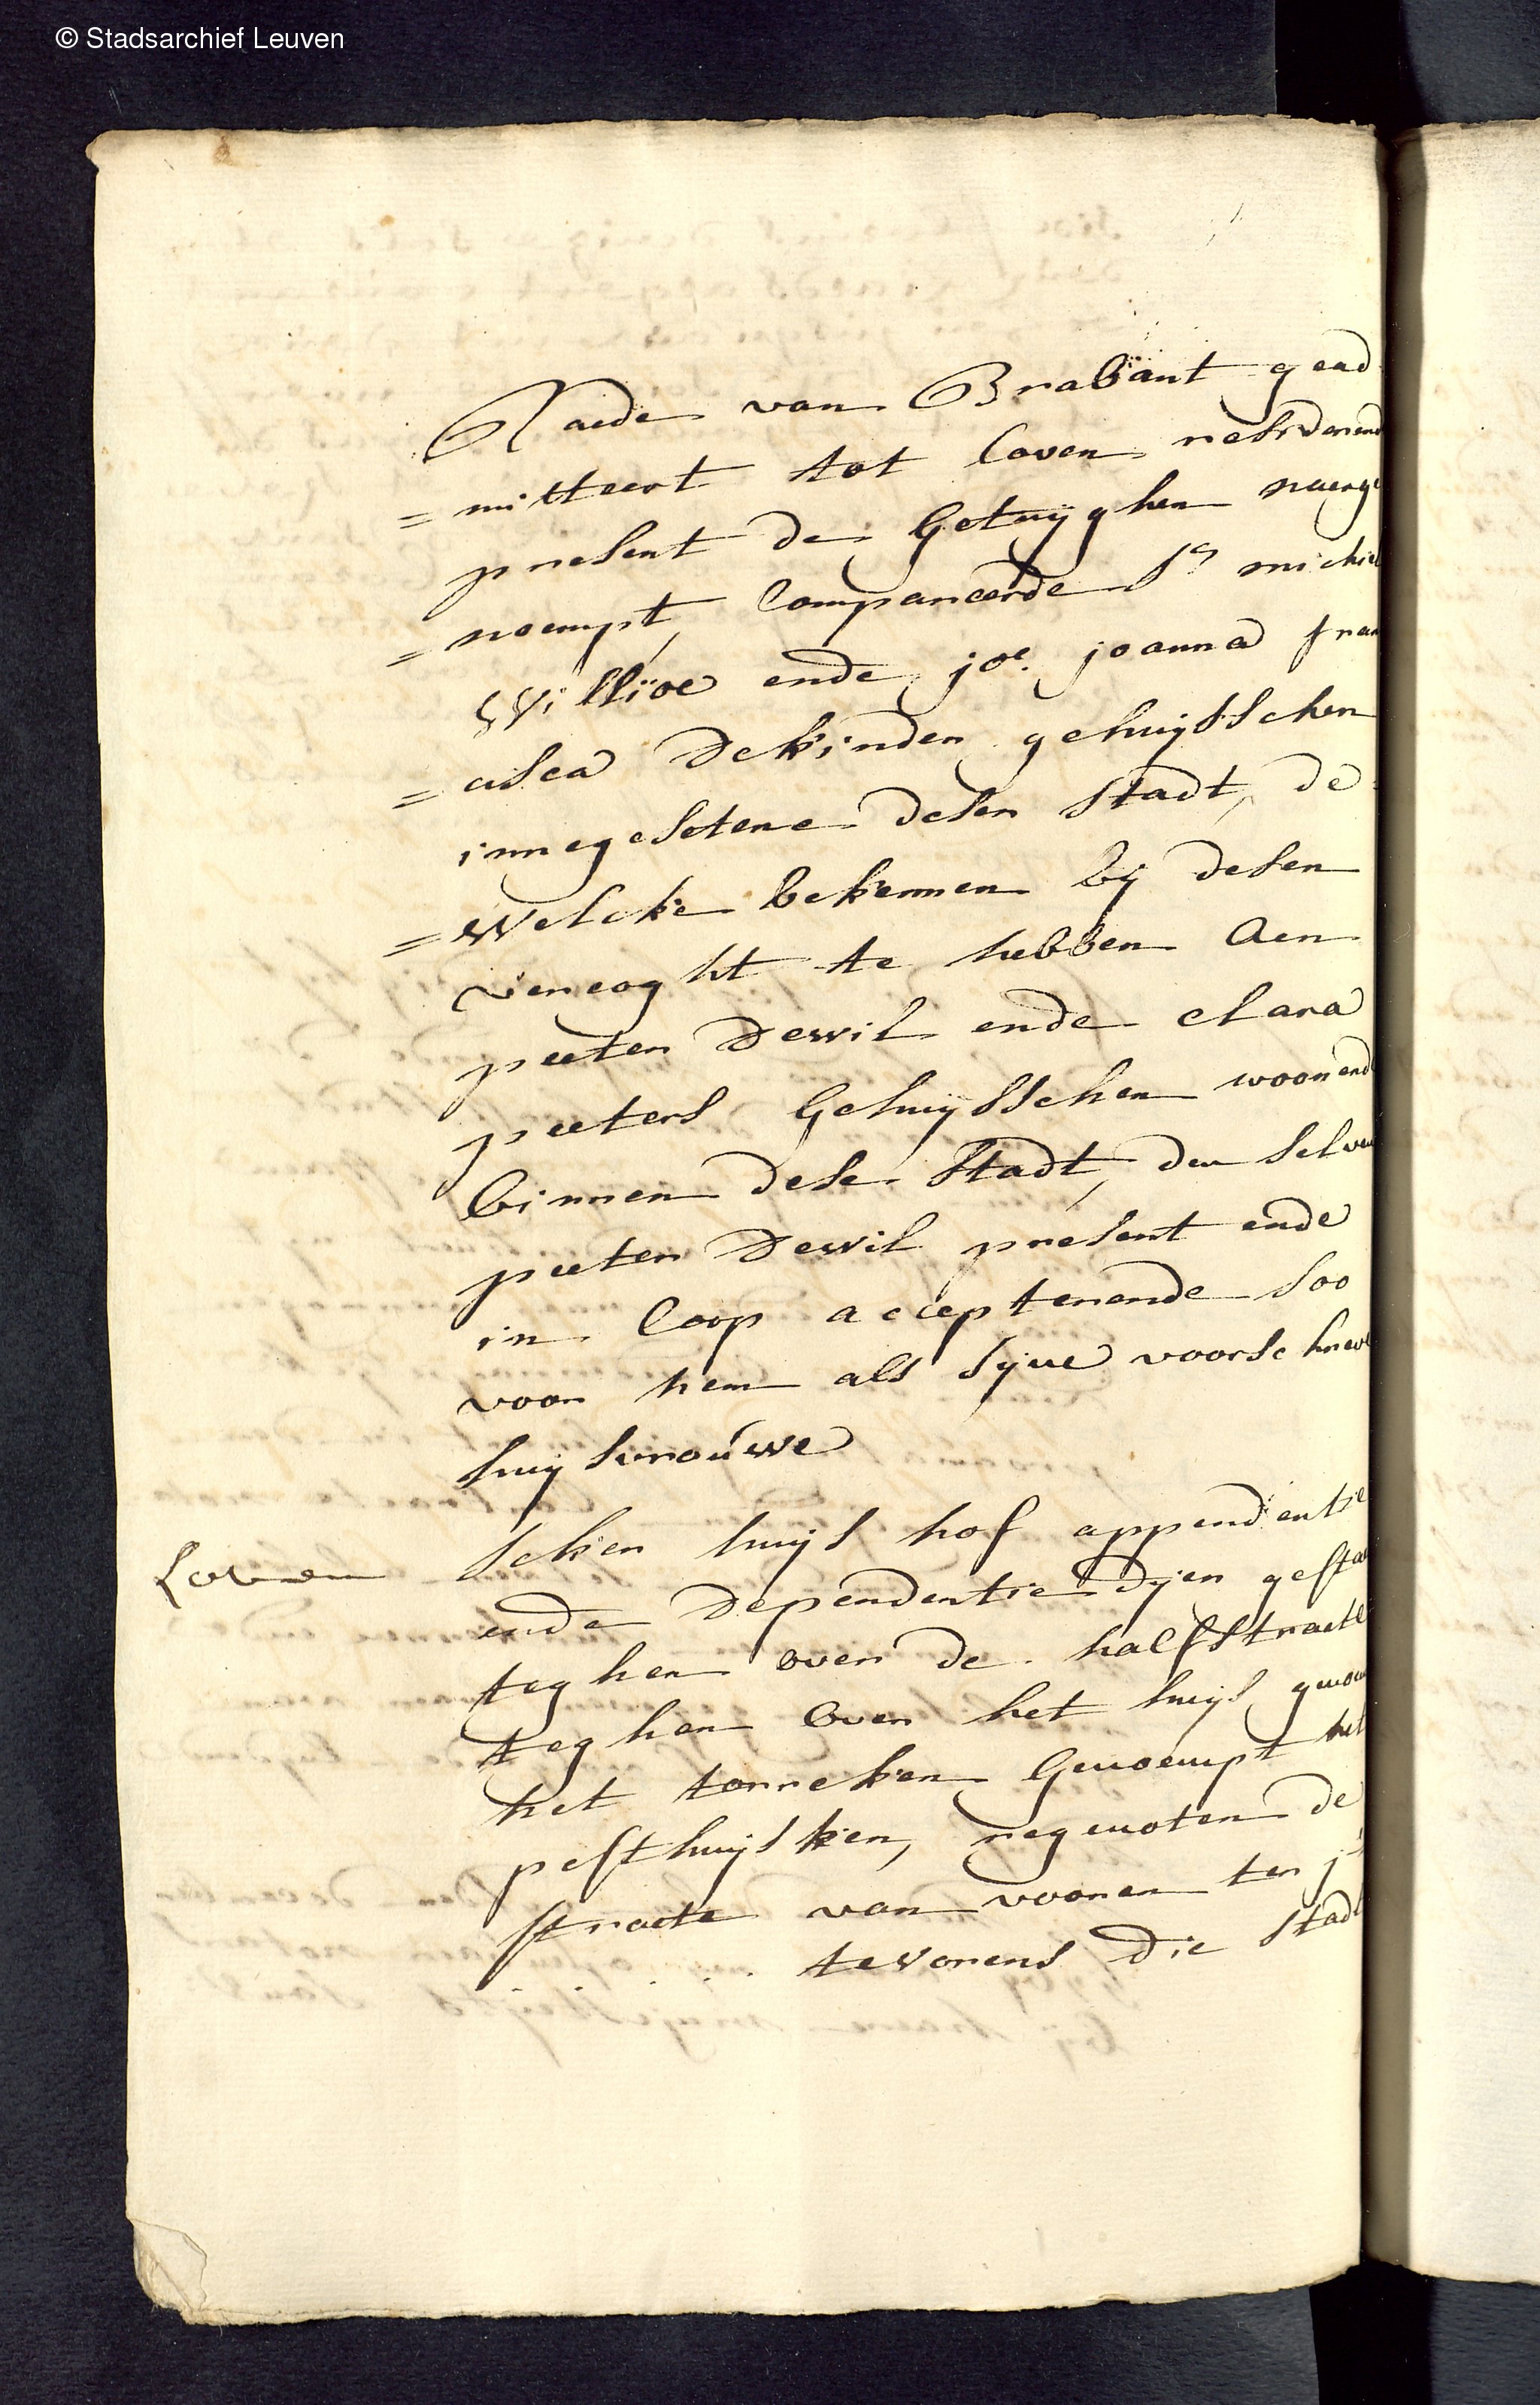 © Stadsarchief Leuven
Raede van Brabant gead
= mitteert tot Loven residerend
present de getuyghen naerge
= noempt, Compareerde Sr michiel
Willioe ende joe. joanna fran
= cisca Dekinder gehuysschen
innegesetene deser stadt, de
= welcke bekennen bij desen
vercoght te hebben aen
peeter Dewil ende clara
peeters gehuysschen woonend
binnen dese stadt, den selven
peeter Dewil present ende
in coop accepterende soo
voor hem als syne voorschreve
huysvrouwe
Loven
seker huys hof appendentie
ende dependentie dyer gestae
teghen over de halfstraete
teghen over het huys genoe
het torreken genoempt het
pesthuysken, regenoten de
straete van vooren ter je
. . . tevorens die stadt